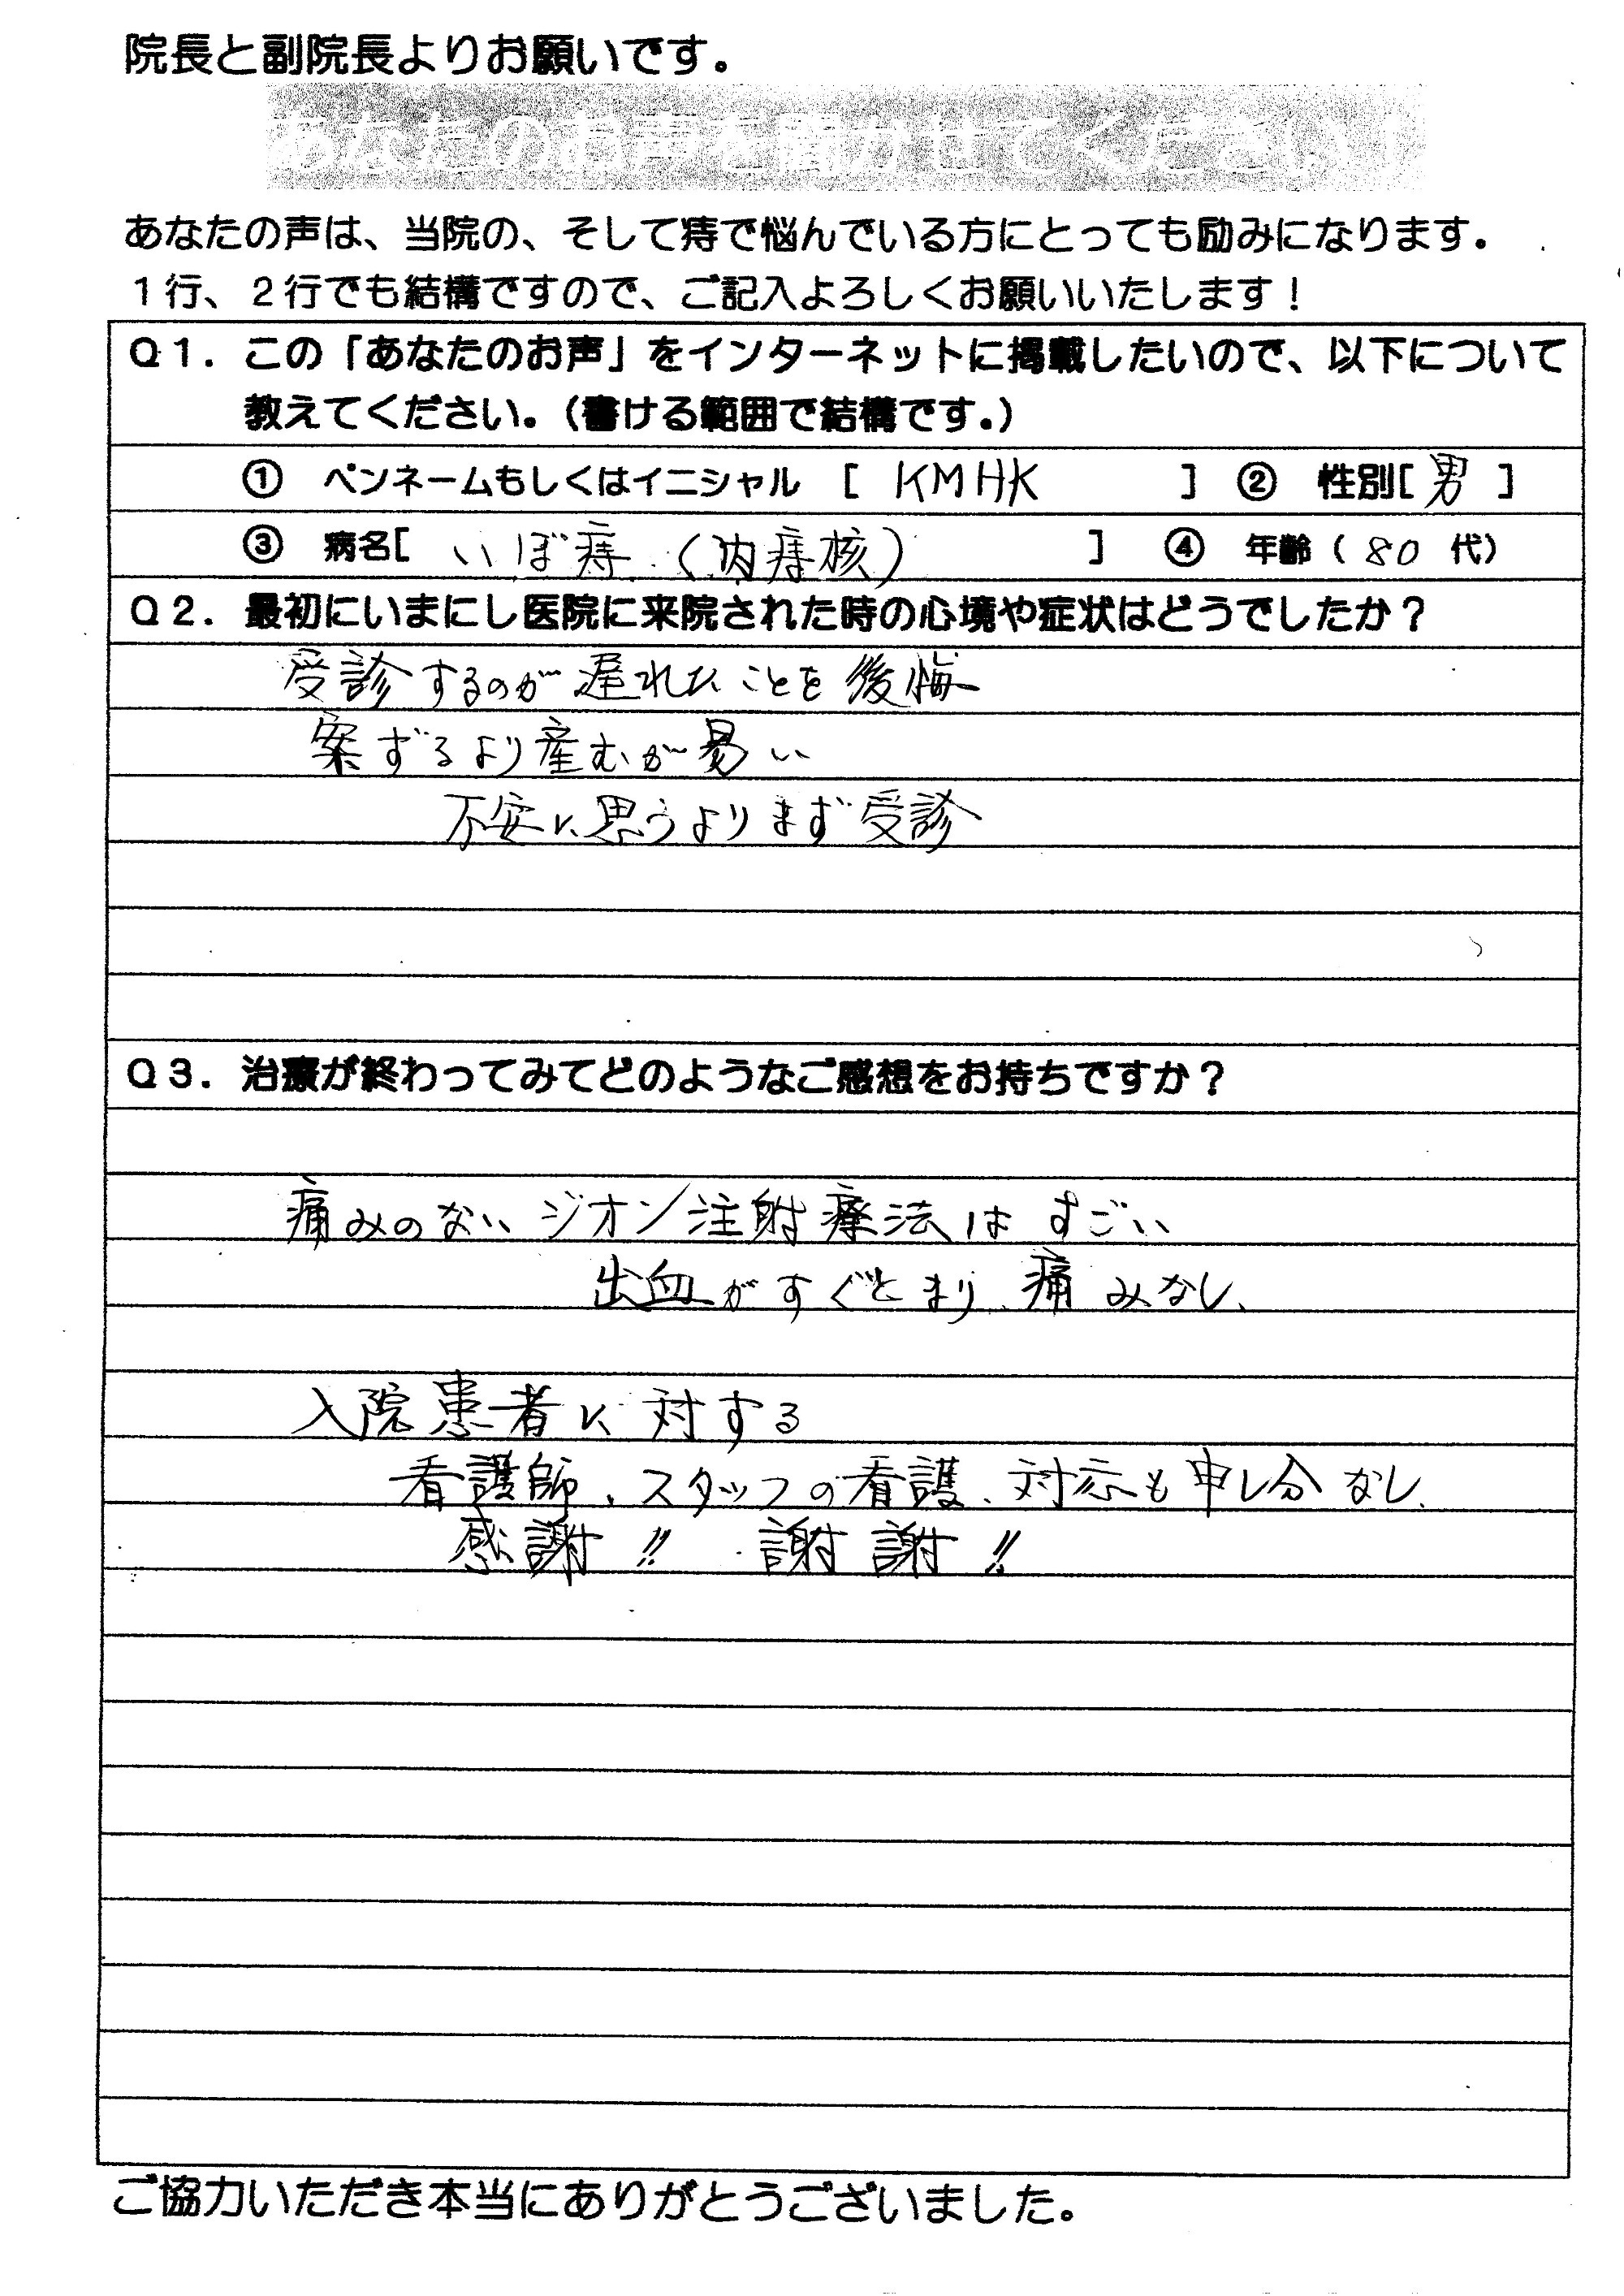 院長と副院長よりお願いです。
あなたのお声を聞かせてください！
あなたの声は、当院の、そして痔で悩んでいる方にとっても励みになります。
１行、２行でも結構ですので、ご記入よろしくお願いいたします！
Ｑ１．この「あなたのお声」をインターネットに掲載したいので、以下について
教えてください。（書ける範囲で結構です。）
① ペンネームもしくはイニシャル ［ KMHK ］ ② 性別［ 男 ］
③ 病名［ いぼ痔（内痔核） ］ ④ 年齢（ 80 代）
Ｑ２．最初にいまにし医院に来院された時の心境や症状はどうでしたか？
受診するのが遅れたことを後悔
案ずるより産むが易い
不安に思うよりまず受診
Ｑ３．治療が終わってみてどのようなご感想をお持ちですか？
痛みのないジオン注射療法はすごい
出血がすぐとまり、痛みなし、
入院患者に対する
看護師、スタッフの看護、対応も申し分なし、
感謝!! 謝謝!!
ご協力いただき本当にありがとうございました。